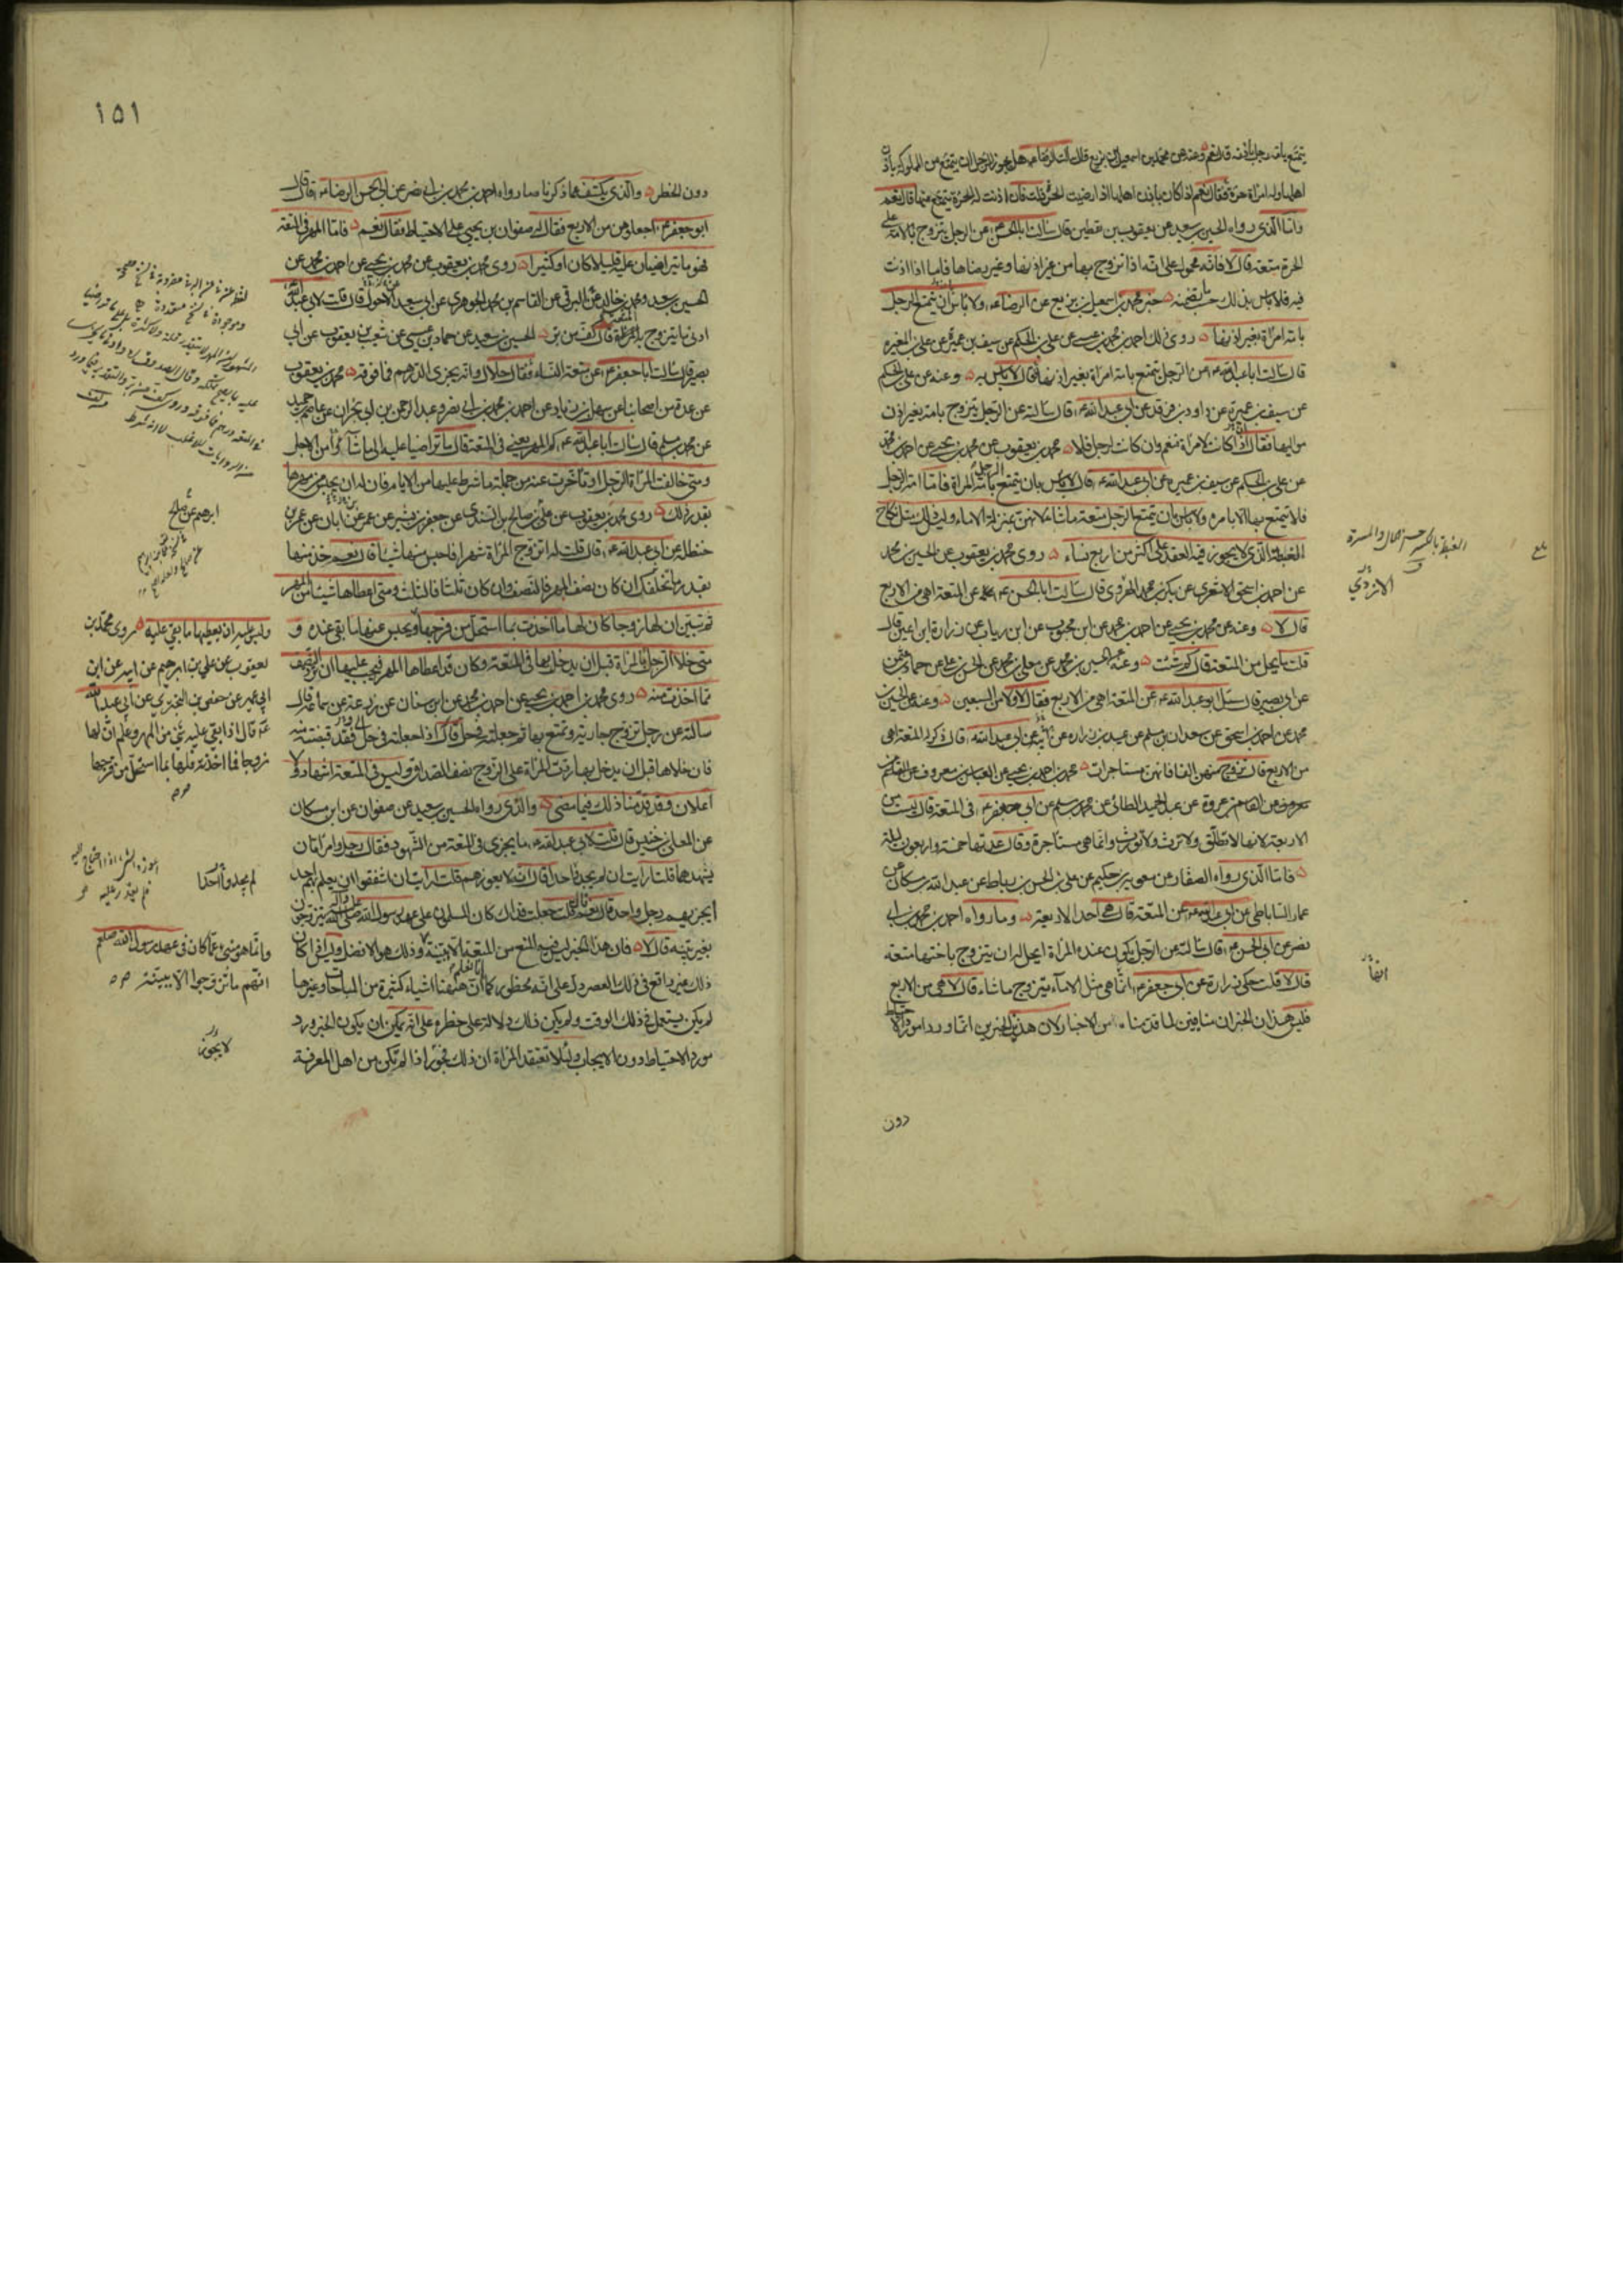 يتمتع بامة رجل باذنه قال نعم وعنه عن محمد بن اسمعيل بن بزيع قال سالت الرضا ع هل يجوز للرجل ان يتمتع من المملوكة باذن
اهلها وله امراة حرة فقال نعم اذا كان باذن اهلها اذا رضيت الحرة قلت فان اذنت له الحرة يتمتع منها قال نعم
واما الذي رواه الحسين بن سعيد عن يعقوب بن يقطين قال سالت ابا الحسن ع عن الرجل يتزوج بالامة على
الحرة متعة قال لا فانه محمول على انه اذا تزوج بها من غير اذنها وغير رضاها فاما اذا اذنت
فيه فلا باس بذلك حسب ما تضمنه خبر محمد بن اسمعيل بن بزيع عن الرضا ع ولا باس ان يتمتع الرجل
بامة امراة بغير اذنها روى ذلك احمد بن محمد بن عيسى عن علي بن الحكم عن سيف بن عميرة عن علي بن المغيرة
قال سالت ابا عبد الله ع عن الرجل يتمتع بامة امراة بغير اذنها قال لا باس به وعنه عن علي بن الحكم
عن سيف بن عميرة عن داود بن فرقد عن ابي عبد الله ع قال سالته عن الرجل يتزوج بامة بغير اذن
مواليها فقال ان كانت لامراة فنعم وان كانت لرجل فلا محمد بن يعقوب عن محمد بن يحيى عن احمد بن محمد
عن علي بن الحكم عن سيف بن عميرة عن ابي عبد الله ع قال لا باس بان يتمتع الرجل بامة المراة فاما امة الرجل
فلا يتمتع بها الا بامره ولا باس ان يتمتع الرجل متعة ما شاء لانهن بمنزلة الاماء وليس ذلك مثل نكاح
الغبطة الذي لا يجوز فيه العقد على اكثر من اربع نساء روى محمد بن يعقوب عن الحسين بن محمد
عن احمد بن اسحق الاشعري عن بكر بن محمد الازدي قال سالت ابا الحسن ع عن المتعة اهي من الاربع
قال لا وعنه عن محمد بن يحيى عن احمد بن محمد عن ابن محبوب عن ابن رياب عن زرارة بن اعين قال
قلت ما يحل من المتعة قال كم شئت وعنه عن الحسين بن محمد عن معلى بن محمد عن الحسن بن علي عن حماد بن عثمن
عن ابي بصير قال سئل ابو عبد الله ع عن المتعة اهي من الاربع فقال لا ولا من السبعين وعنه عن الحسين
بن محمد عن احمد بن اسحق عن سعدان بن مسلم عن عبيد بن زرارة عن ابيه عن ابي عبد الله ع قال ذكر له المتعة اهي
من الاربع قال تزوج منهن الفا فانهن مستاجرات محمد بن احمد بن يحيى عن العباس بن معروف عن القاسم بن
عروة عن عبد الحميد الطائي عن محمد بن مسلم عن ابي جعفر ع في المتعة قال ليست من
الاربعة لانها لا تطلق ولا ترث ولا تورث وانما هي مستاجرة وقال عدتها خمسة واربعون ليلة
فاما الذي رواه الصفار عن معوية بن حكيم عن علي بن الحسن بن رباط عن عبد الله بن مسكان عن
عمار الساباطي عن ابي عبد الله ع عن المتعة قال هي احد الاربعة وما رواه احمد بن محمد بن ابي
نصر عن ابي الحسن ع قال سالته عن الرجل يكون عنده المراة ايحل له ان يتزوج باختها متعة
قال لا قلت حكى زرارة عن ابي جعفر ع انما هي مثل الاماء يتزوج ما شاء قال لا هي من الاربع
فليس هذان الخبران منافيين لما قدمناه من الاخبار لان هذين الخبرين انما وردا مورد الاحتياط
دون
الغبطة بالكسر حسن الحال والمسرة
الازدي
بلغ
ايضا
١٥١
دون الحظر والذي يكشف عما ذكرنا ما رواه احمد بن محمد بن ابي نصر عن ابي الحسن الرضا ع قال قال
ابو جعفر ع اجعلوهن من الاربع فقال له صفوان بن يحيى على الاحتياط فقال نعم فاما المهر في المتعة
فهو ما تراضيان عليه قليلا كان او كثيرا روى محمد بن يعقوب عن محمد بن يحيى عن احمد بن محمد عن
الحسين بن سعيد ومحمد بن خالد البرقي عن القاسم بن محمد الجوهري عن ابي سعيد عن الاحول قال قلت لابي عبد الله ع
ادنى ما يتزوج به المتعة قال كف من بر الحسين بن سعيد عن حماد بن عيسى عن شعيب بن يعقوب عن ابي
بصير قال سالت ابا جعفر ع عن متعة النساء فقال حلال وانه يجزي الدرهم فما فوقه محمد بن يعقوب
عن عدة من اصحابنا عن سهل بن زياد عن احمد بن محمد بن ابي نصر وعبد الرحمن بن ابي نجران عن عاصم بن حميد
عن محمد بن مسلم قال سالت ابا عبد الله ع كم المهر يعني في المتعة قال ما تراضيا عليه الى ما شاآ من الاجل
ومتى خالفت المراة الرجل او تاخرت عنه من جملة ما شرط عليها من الايام فان له ان يحبس من مهرها
بقدر ذلك روى محمد بن يعقوب عن علي عن صالح بن السندي عن جعفر بن بشير عن عمر بن ابان عن عمر بن
حنظلة عن ابي عبد الله ع قال قلت له اتزوج المراة شهرا فاحبس عنها شيئا قال نعم خذ منها
بقدر ما تخلفك ان كان نصف شهر فالنصف وان كان ثلثا فالثلث ومتى اعطاها شيئا من المهر
ثم تبين ان لها زوجا كان لها ما اخذت بما استحل من فرجها ويحبس عنها ما بقي عنده و
متى خلا الرجل بالمراة قبل ان يدخل بها في المتعة وكان قد اعطاها المهر فيجب عليها ان ترد النصف
مما اخذت منه روى محمد بن احمد بن يحيى عن احمد بن محمد عن ابن سنان عن زرعة عن سماعة قال
سالته عن رجل تزوج جارية وتمتع بها ثم جعلته في حل قال اذا جعلته في حل فقد قبضته منه
فان خلاها قبل ان يدخل بها ردت المراة على الزوج نصف الصداق وليس في المتعة اشهاد ولا
اعلان وقد قدمنا ذلك فيما مضى والذي رواه الحسين بن سعيد عن صفوان عن ابن مسكان
عن المعلى بن خنيس قال قلت لابي عبد الله ع ما يجزي في المتعة من الشهود فقال رجل وامراتان
يشهدهما قلت ارايت ان لم يجد احدا قال انه لا يعوزهم قلت له ارايت ان اشفقوا ان يعلم بهم احد
ايجزيهم رجل واحد قال نعم قال قلت جعلت فداك كان المسلمون على عهد رسول الله صلى الله عليه وآله يتزوجون
بغير بينة قال لا فان هذا الخبر ليس فيه المنع من المتعة الا ببينة وذلك هو الافضل وليس اذا كان
ذلك غير واقع في ذلك العصر دل على انه محظور كما انا نعلم ان هيهنا اشياء كثيرة من المباحات وغيرها
لم يكن يستعمل في ذلك الوقت ولم يكن ذلك دلالة على حظره على انه يمكن ان يكون الخبر ورد
مورد الاحتياط دون الايجاب ولئلا تعتقد المراة ان ذلك فجور اذا لم تكن من اهل المعرفة
ابرهيم عن صالح
وليس عليه ان يعطيها ما بقي عليه روى محمد بن
يعقوب عن علي بن ابرهيم عن ابيه عن ابن
ابي عمير عن حفص بن البختري عن ابي عبد الله
ع قال اذا بقي عليه شيء من المهر وعلم ان لها
زوجا فما اخذته فلها بما استحل من فرجها
لم يجدوا احدا
وانما هو منبئ عما كان في عهد رسول الله صلعم
انهم ما تزوجوا الا ببينة
لا يجوز